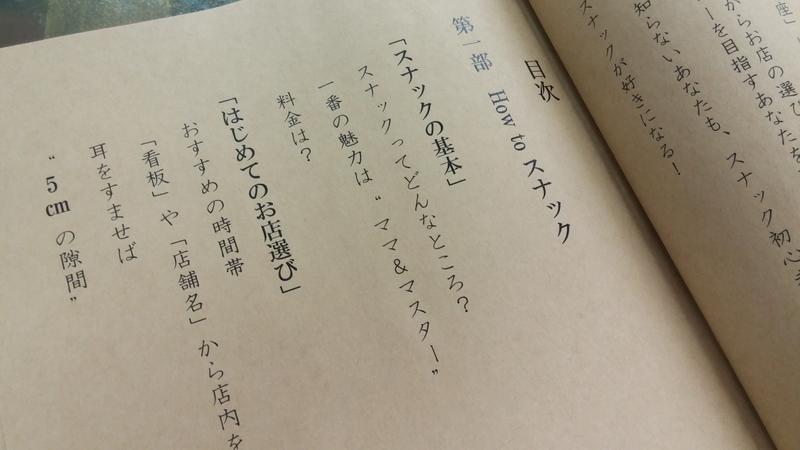 座」
からお店の選び
ーを目指すあなたを
知らないあなたも、スナック初心
スナックが好きになる！
目次
第一部 How to スナック
「スナックの基本」
スナックってどんなところ？
一番の魅力は〝ママ＆マスター〟
料金は？
「はじめてのお店選び」
おすすめの時間帯
「看板」や「店舗名」から店内を
耳をすませば
〝5㎝の隙間〟